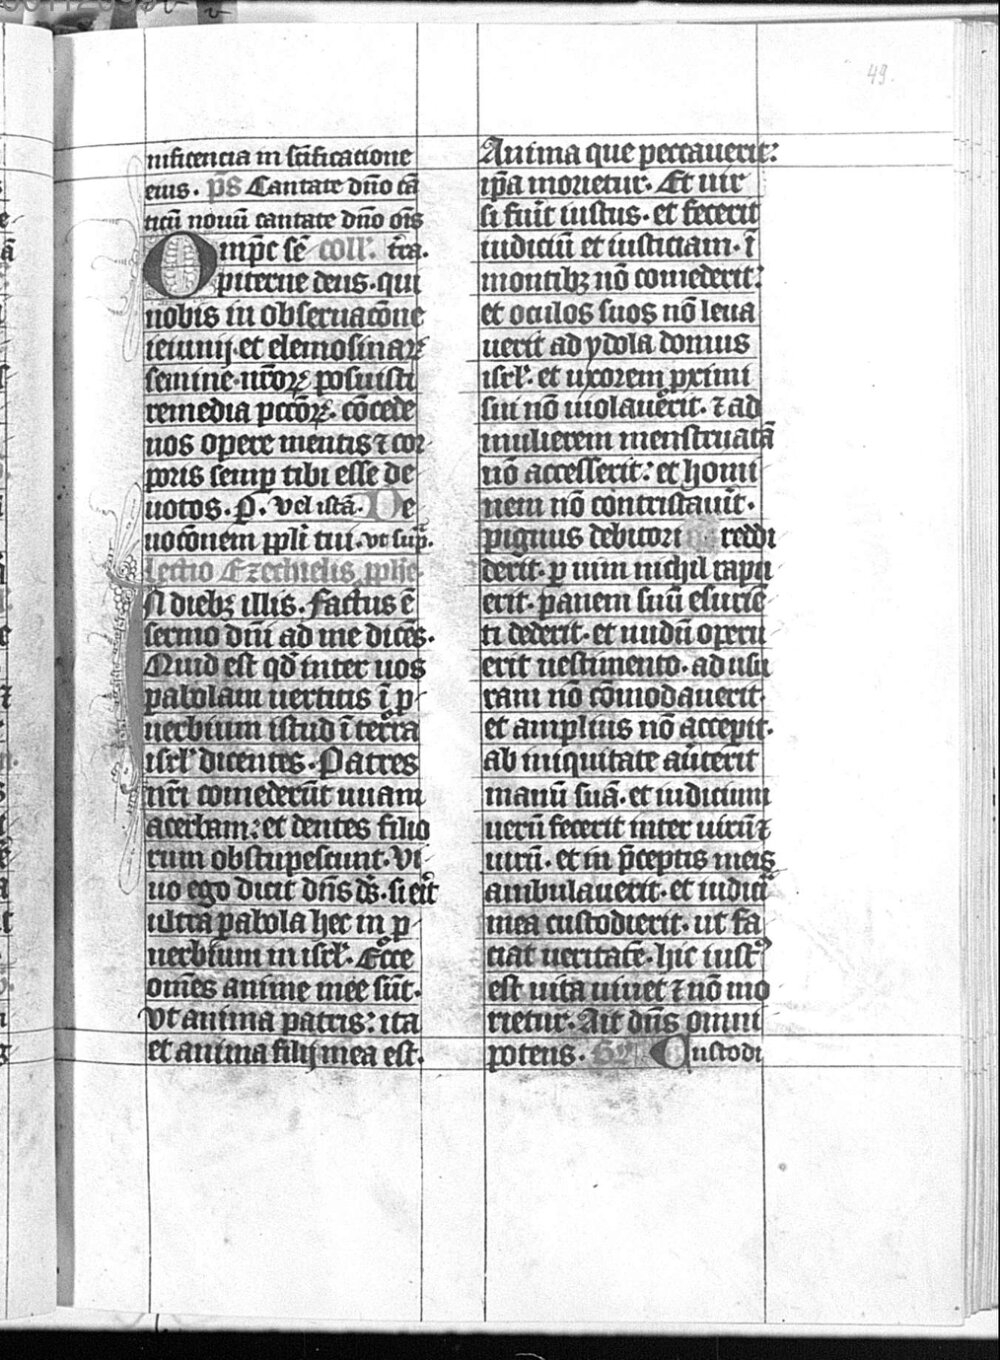 49.
nificencia in sc̄ificacione
eius. p̄s Cantate dn̄o cā
ticū nouū cantate dn̄o om̄s
Omp̄c sē coll'. tr̄a.
piterne deus. qui
nobis in obseruacōne
ieiunij. et elemosinaꝝ
semine. nr̄oꝝ posuisti
remedia pccōꝝ. cōcede
nos opere mentis ⁊ cor
poris semꝑ tibi esse de
uotos. P̲. Vel istā. De
uocōnem ppli tui. vt sup̄.
Lectio Ezechielis pphe
In diebꝫ illis. Factus ē
sermo dn̄i ad me dicēs.
Quid est qd̄ inter uos
pabolam uertitis ī ꝓ
uerbium istud ī terra
isrl' dicentes. Patres
nr̄i comederūt uuam
acerbam: et dentes filio
rum obstupescunt. Vi
uo ego dicit dn̄s ds̄. si erit
ultra pabola hec in ꝓ
uerbium in isrl'. Ecce
om̄es anime mee sūt.
Vt anima patris: ita
et anima filij mea est.
Anima que peccauerit:
ip̄a morietur. Et uir
si fuīt iustus. et fecerit
iudiciū et iusticiam. ī
montibꝫ nō comederit:
et oculos suos nō leua
uerit ad ydola domus
isrl'. et uxorem ꝓximi
sui nō uiolauerit. ⁊ ad
mulierem menstruatā
nō accesserit: et homi
nem nō contristauīt.
pignus debitori reddi
derit. ꝑ uim nichil rapu
erit. panem suū esuriē
ti dederit. et nudū operu
erit uestimento. ad usu
ram nō cōmodauerit
et amplius nō acceꝑit.
ab iniquitate auerterit
manū suā. et iudicium
uerū fecerit inter uirū ⁊
uirū. et in p̄ceptis meis
ambulauerit. et iudicia
mea custodierit. ut fa
ciat ueritatē. hic iustꝰ
est uita uiuet ⁊ nō mo
rietur. Ait dn̄s omni
potens. Gr̄ Custodi